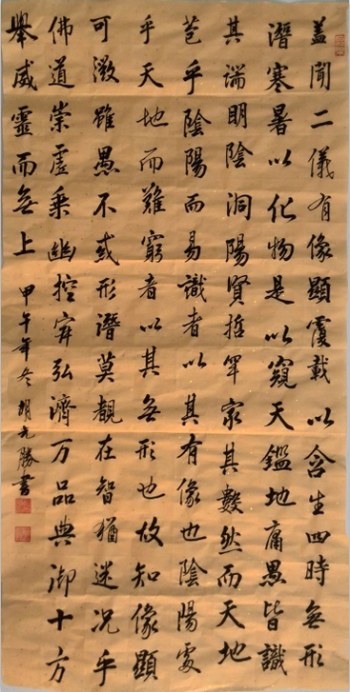 蓋聞二儀有像顯覆載以含生四時無形
潛寒暑以化物是以窺天鑑地庸愚皆識
其端明陰洞陽賢哲罕窮其數然而天地
苞乎陰陽而易識者以其有像也陰陽處
乎天地而難窮者以其無形也故知像顯
可徵雖愚不惑形潛莫覩在智猶迷況乎
佛道崇虛乘幽控寂弘濟万品典御十方
舉威靈而無上
甲午年冬勝書